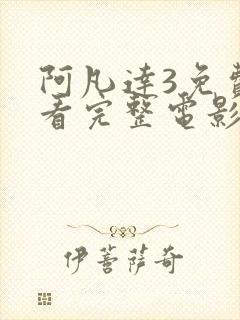 阿凡達3免費
看完整電影
伊菩薩奇